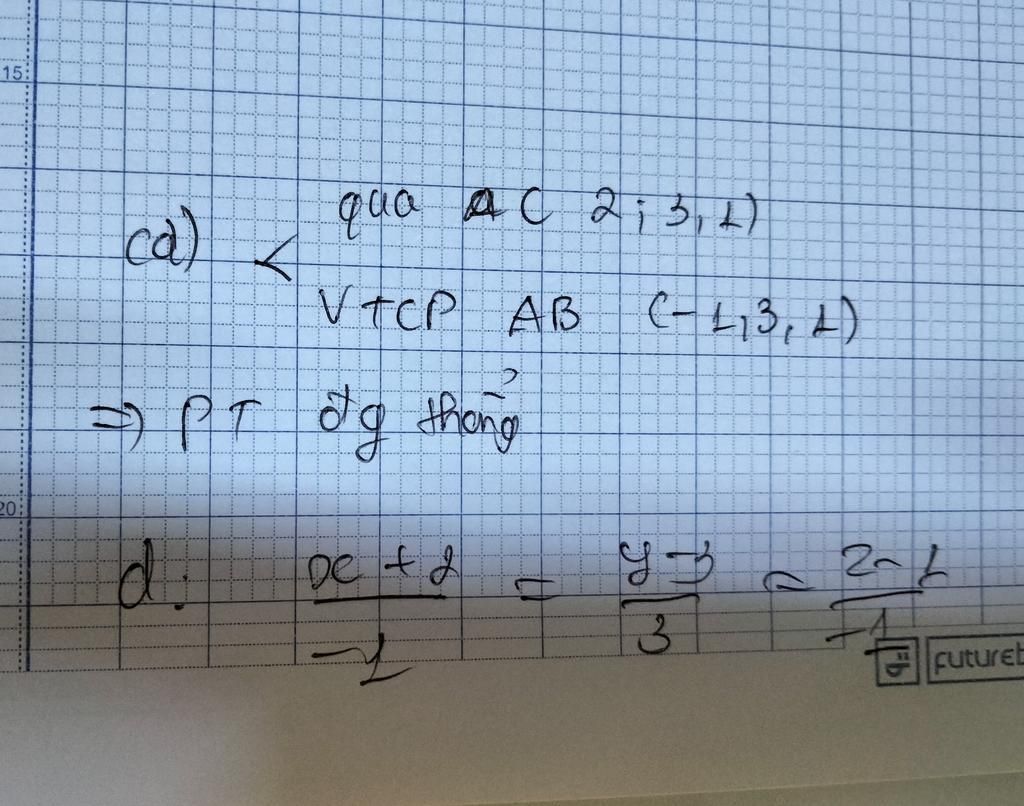 15
qua A ( 2; 3, 1)
(d) <
VTCP AB (-1, 3, 1)
=> PT đg thẳng
20
d: x + 2 / -1 = y - 3 / 3 = z - 1 / -1
futureb